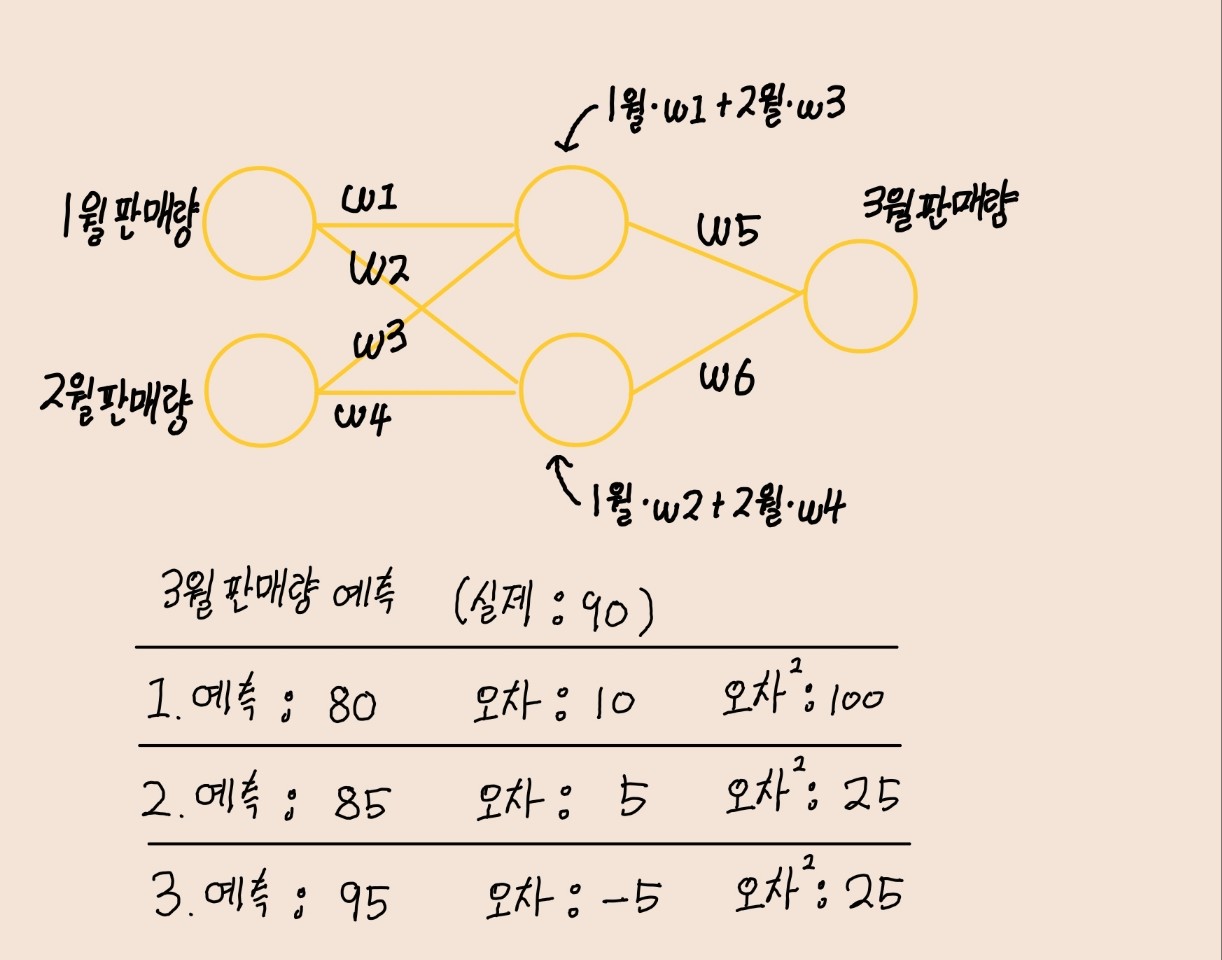 1월·w1+2월·w3
1월 판매량
w1
w2
w5
3월 판매량
2월 판매량
w3
w4
w6
1월·w2+2월·w4
3월 판매량 예측 (실제 : 90)
1. 예측 ; 80 오차 : 10 오차²: 100
2. 예측 ; 85 오차 : 5 오차²: 25
3. 예측 ; 95 오차 : -5 오차²: 25